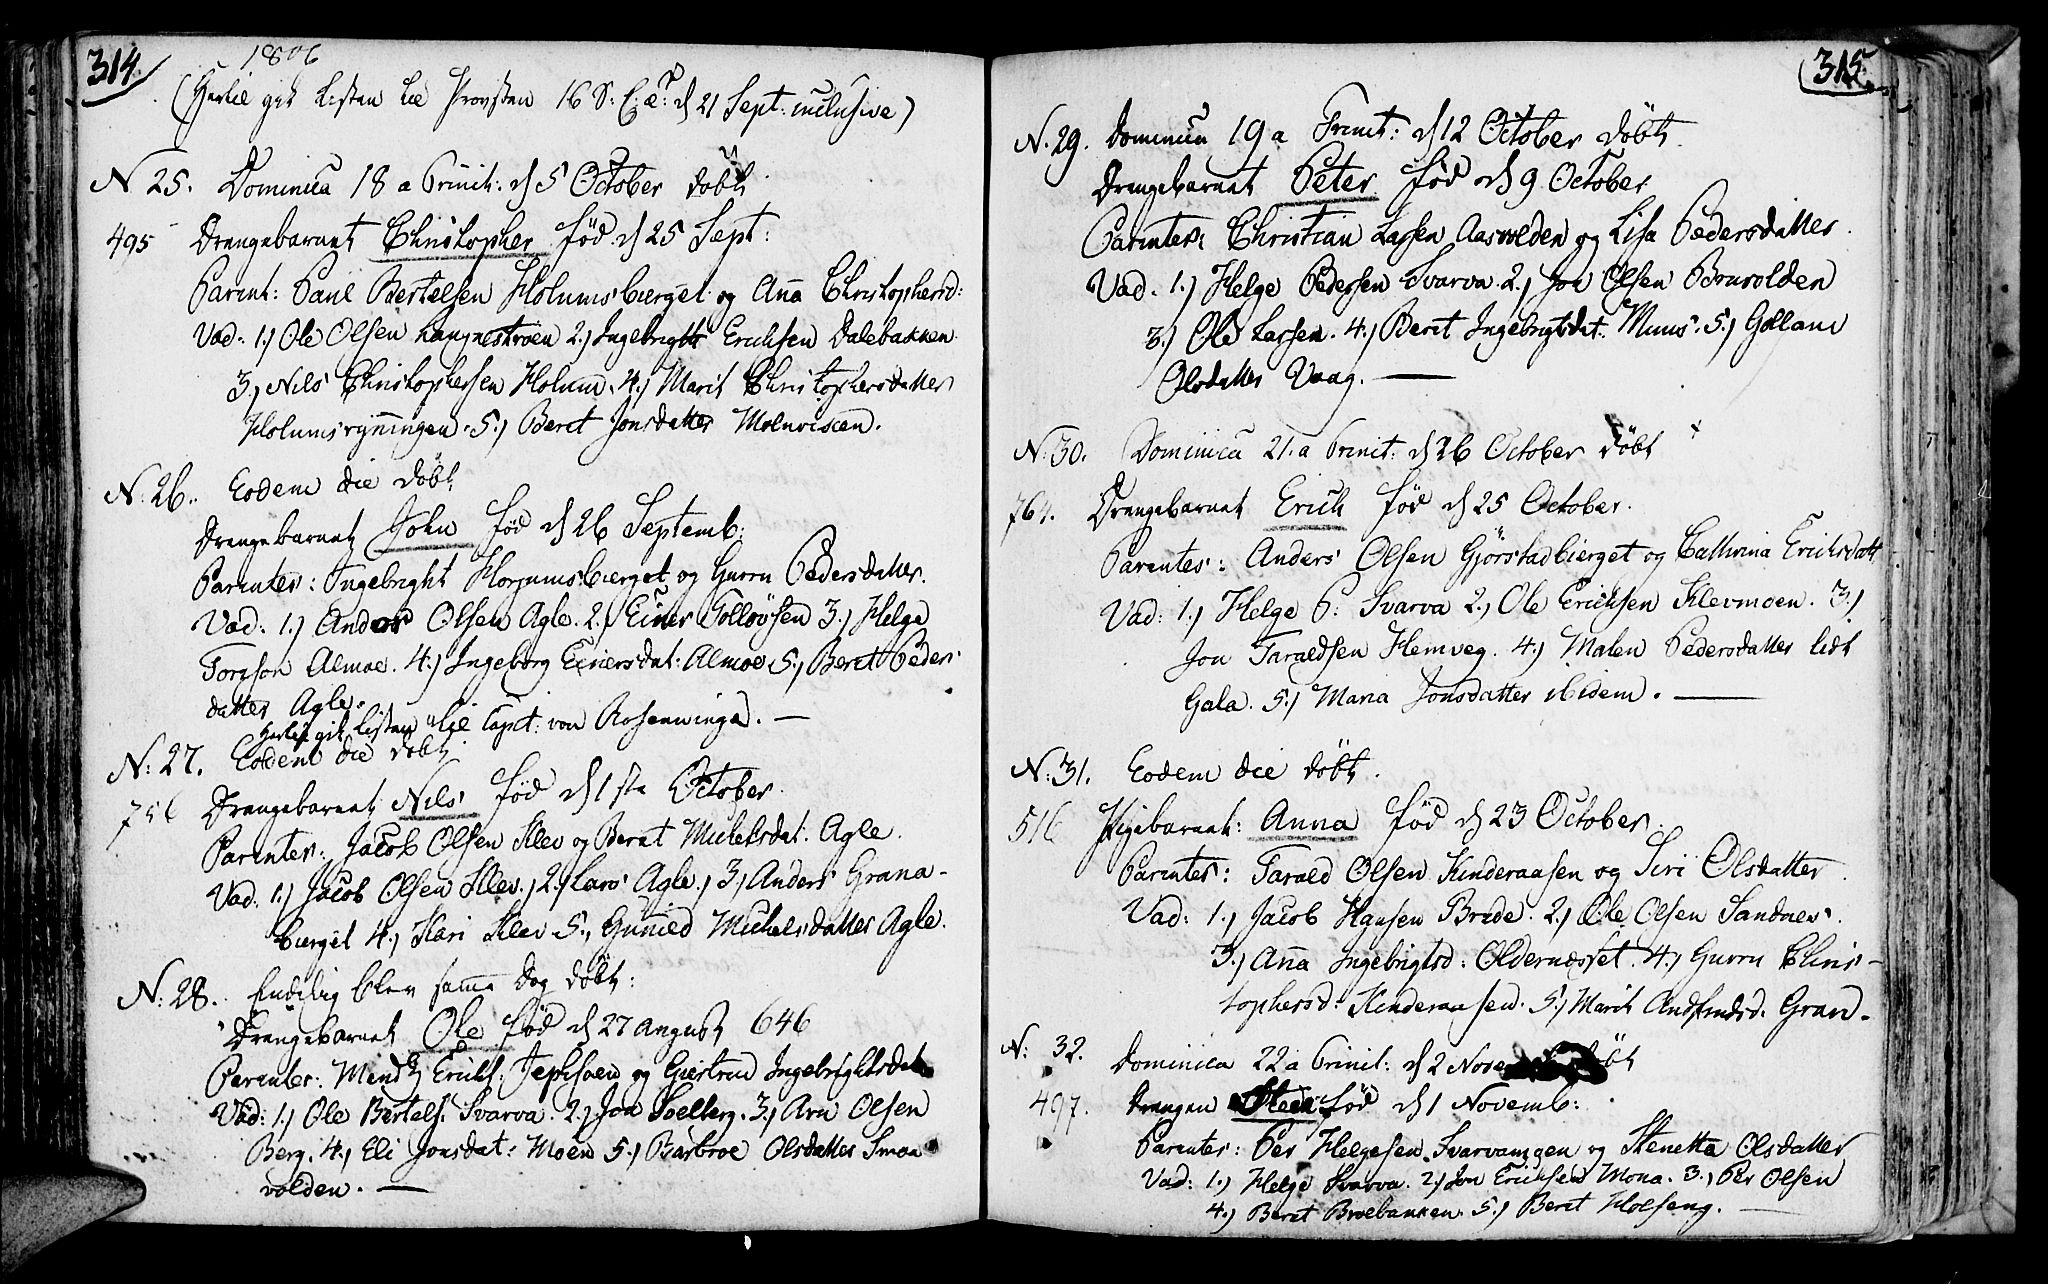 314.
1806
(Hertil gik Listen til Provsten 16 S: E. Tr: d 21 Sept: inclusive)
N 25. Dominica 18 a Trinit: d 5 October döbt
495 Drengebarnet Christopher föd d 25 Sept:
Parent: Paul Bertelsen Holumsbierget og Anna Christophersd:
Vad: 1.) Ole Olsen Langnestrøen 2.) Ingebright Erichsen Dalebakken
3.) Nils Christophersen Holum. 4.) Marit Christophersdatter
Holumsrynningen. 5.) Beret Jonsdatter Moenviscen.
N: 26. Eodem die döbt
Drengebarnet John föd d 26 Septemb:
Parentes: Ingebright Horjumsbierget og Gurru Pedersdatter.
Vad: 1.) Anders Olsen Agle. 2.) Einer Tollövsen 3.) Helge
Torgson Almoe. 4.) Ingeborg Einersdat: Almoe 5.) Beret Peders
datter Agle.
Hertil gik Listen til Capt: von Rosenwinge. —
N: 27. Eodem die döbt
756 Drengebarnet Nils föd d 1ste October
Parentes: Jacob Olsen Klev og Beret Michelsdat: Agle.
Vad. 1.) Jacob Olsen Klev. 2.) Lars Agle. 3.) Anders Grana-
bierget 4.) Kari Klev 5., Gunild Michelsdatter Agle.
N: 28. Endelig blev samme Dag döbt:
Drengebarnet Ole föd d 27 August 646
Parentes: Mendz Erichs: Jephsoen og Giertrud Ingebrightsdat
Vad: 1.) Ole Bertels: Svarva. 2.) Jon Soelberg. 3.) Arn Olsen
Berg. 4.) Eli Jonsdat: Moen 5.) Barbroe Olsdatter Smaa
volden. —
315.
N. 29. Dominica 19 a Trinit: d 12 October döbt
Drengebarnet Peter föd d 9 October
Parentes: Christian Larsen Aasvolden og Lisa Pedersdatter.
Vad. 1.) Helge Pedersen Svarva. 2.) Jon Olsen Bruvolden
3.) Ole Larsen. 4.) Beret Ingebrigtsdat: Muus. 5.) Gollaui
Olsdatter Vaag. —
N: 30. Dominica 21. a Trinit: d 26 October döbt
764. Drengebarnet Erich föd d 25 October.
Parentes: Anders Olsen Gjörstadbierget og Cathrina Erichsdatt
Vad: 1.) Helge P: Svarva 2.) Ole Erichsen Klevmoen. 3.)
Jon Taraldsen Hemveg. 4.) Malen Pedersdatter lidt
Gala. 5.) Maria Jonsdatter ibidem. —
N: 31. Eodem die döbt.
516 Pigebarnet: Anna föd d 23 October.
Parentes: Tarald Olsen Kinderaasen og Siri Olsdatter.
Vad: 1.) Jacob Hansen Brede. 2.) Ole Olsen Sandnes.
3.) Anna Ingebrigtsd: Oldernæsset. 4.) Gurru Chris-
tophersd: Kinderaasen. 5.) Marit Andfindsd. Gran.
N: 32. Dominica 22 a Trinit: d 2 Nove döbt
497. Drengen föd d 1 Novemb:
Parentes: Per Helgesen Svarvaungen og Stenetta Olsdatter
Vad: 1.) Helge Svarva. 2.) Jon Erichsen Mona. 3.) Per Olsen
4.) Beret Broebakken. 5.) Berit Holseng. —